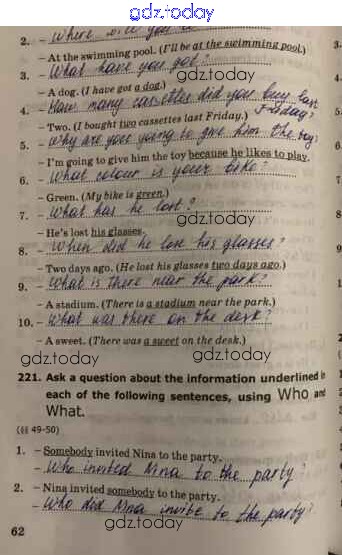 gdz.today
2. – Where will you be
– At the swimming pool. (I'll be at the swimming pool.)
3. – What have you got?
gdz.today
– A dog. (I have got a dog.)
4. – How many cassettes did you buy last Friday?
– Two. (I bought two cassettes last Friday.)
5. – Why are you going to give him the toy?
– I'm going to give him the toy because he likes to play.
6. – What colour is your bike?
– Green. (My bike is green.)
gdz.today
7. – What has he lost?
gdz.today
– He's lost his glasses.
8. – When did he lose his glasses?
– Two days ago. (He lost his glasses two days ago.)
9. – What is there near the park?
gdz.today
– A stadium. (There is a stadium near the park.)
10. – What was there on the desk?
– A sweet. (There was a sweet on the desk.)
gdz.today
gdz.today
221. Ask a question about the information underlined in
each of the following sentences, using Who and
What.
(§§ 49-50)
gdz.today
1. – Somebody invited Nina to the party.
– Who invited Nina to the party?
2. – Nina invited somebody to the party.
– Who did Nina invite to the party?
gdz.today
62